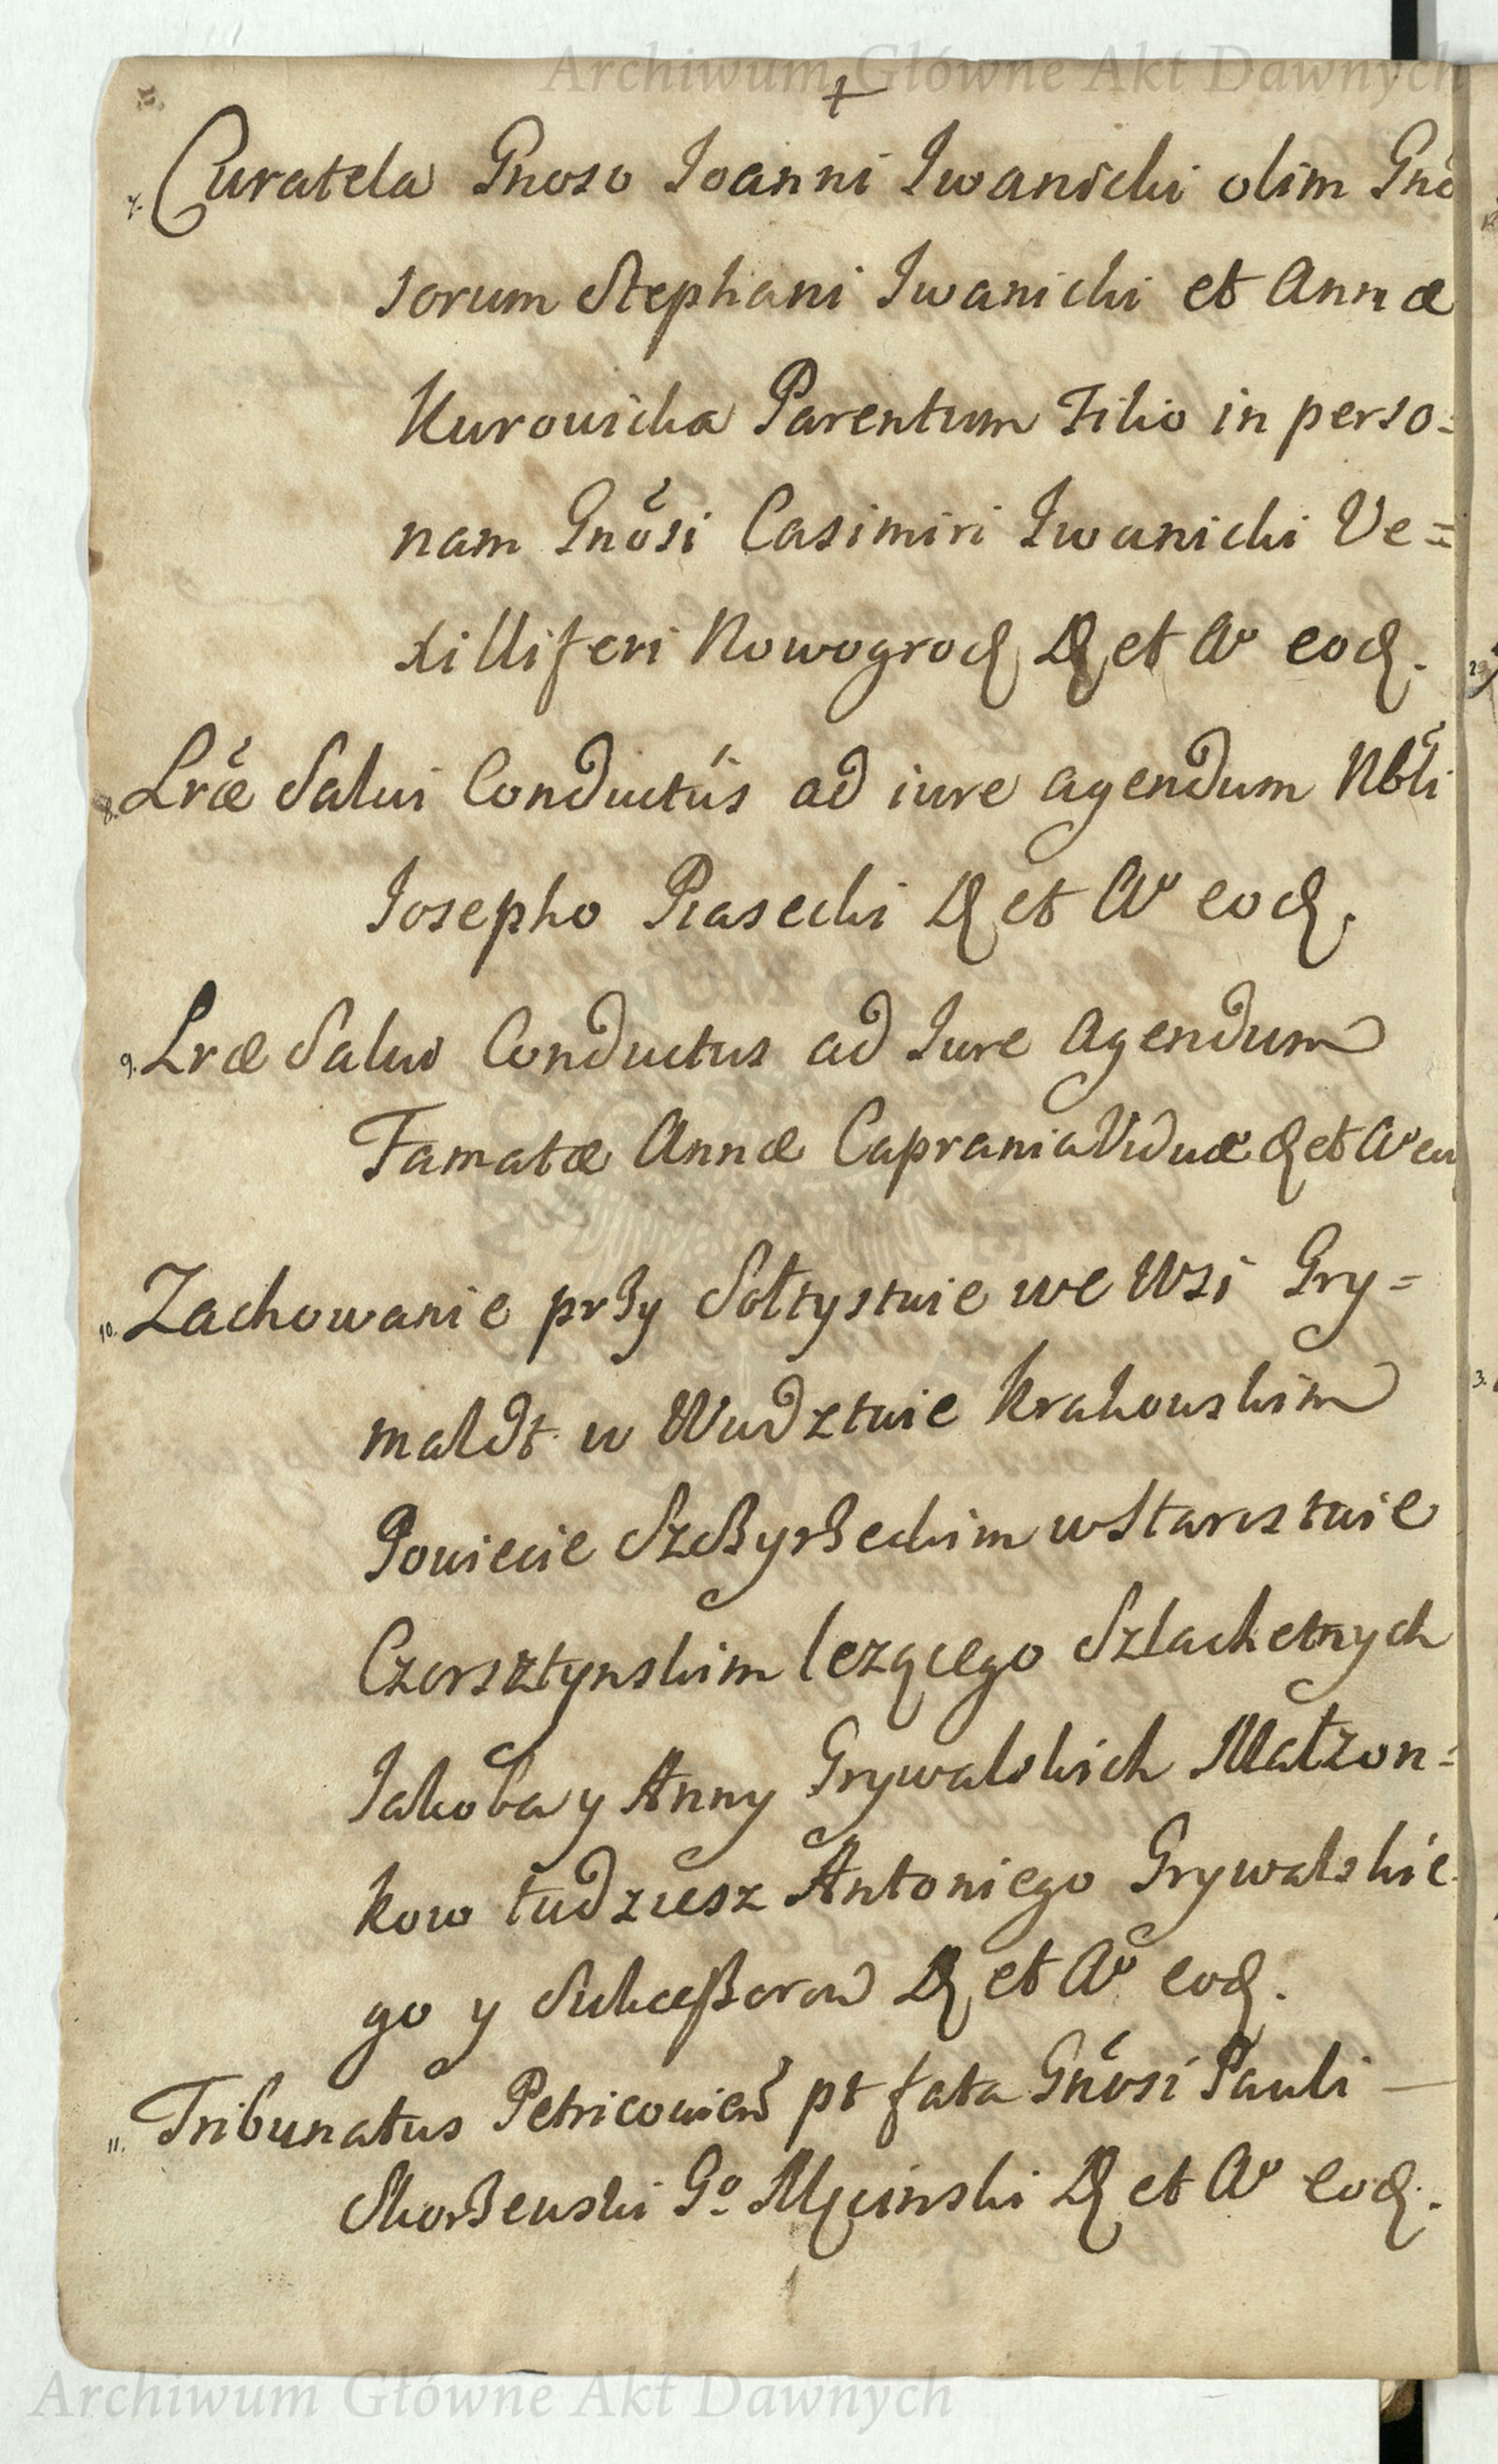 Archiwum Główne Akt Dawnych
+
7. Curatela Gnoso Joanni Jwanicki olim Gno
sorum Stephani Jwanicki et Annæ
Kurowicka Parentum Filio in perso=
nam Gnosi Casimiri Jwanicki Ve=
xilliferi Nowogrod D et Ao eod.
8. Lræ Salui Conductus ad iure agendum Nbli
Josepho Piasecki D et Ao eod.
9. Lræ Salui Conductus ad Jure agendum
Famatæ Annæ Caprania Viduæ D et Ao
10. Zachowanie przy Sołtystwie we Wsi Gry=
maldt w Wudztwie Krakowskim
Powiecie Szczyrzeckim w Starostwie
Czorsztynskim lezącego Szlachetnych
Jakoba y Anny Grywalskich Małzon=
kow tudziesz Antoniego Grywalskie
go y Sukceßorow D et Ao eod.
11. Tribunatus Petricouien pt fata Gnosi Pauli —
Skorzewski Go Męcinski D et Ao eod.
Archiwum Główne Akt Dawnych